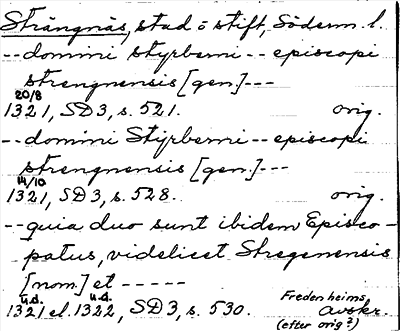 Strängnäs, stad o stift, Söderm. l.
-- domini Styrberni -- episcopi
strengnensis [gen.] ---
20/8
1321, SD3, s. 521. orig.
-- domini Styrberni -- episcopi
strengnensis [gen.] ---
14/10
1321, SD3, s. 528. orig.
-- quia duo sunt ibidem Episco-
patus, videlicet Stregenensis
[nom.] et -----
u.d. u.d.
1321 el. 1322, SD3, s. 530. Fredenheims avskr.
(efter orig?)